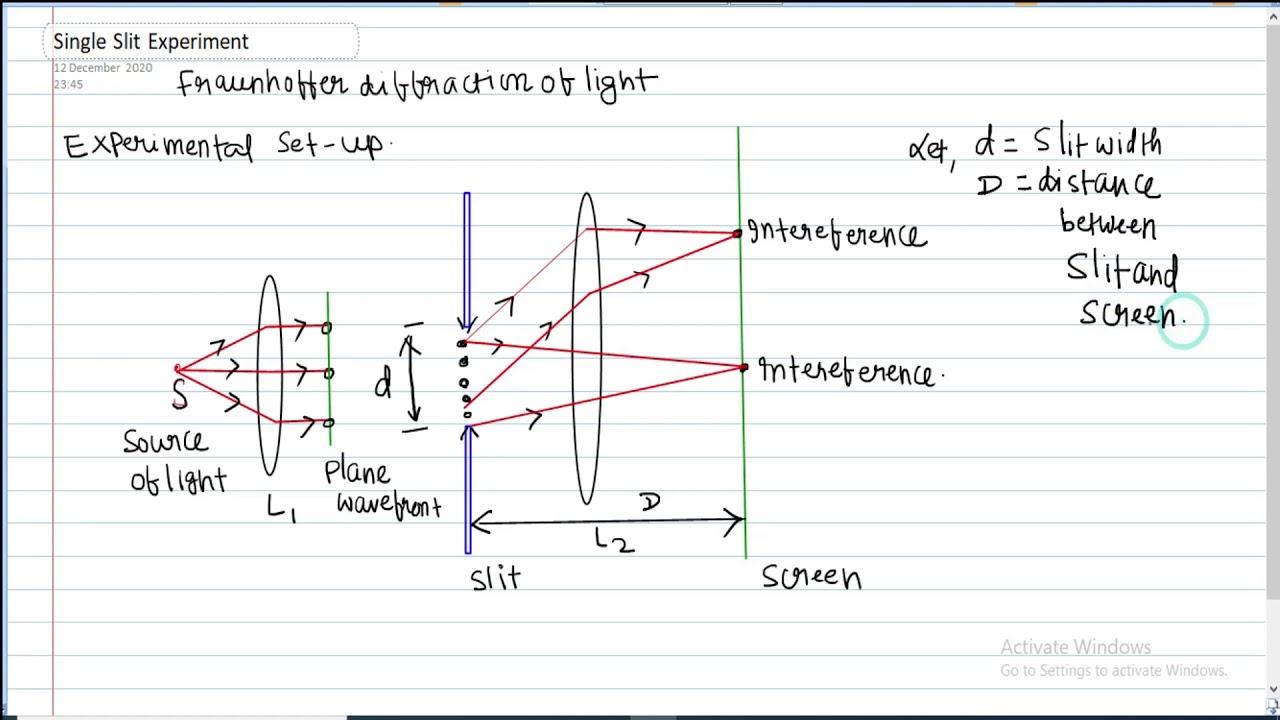 Single Slit Experiment
12 December 2020
23:45
Fraunhoffer diffraction of light
Experimental Set-up.
Let, d = Slit width
D = distance
between
Slit and
Screen.
Intereference
Intereference.
d
S
Source
of light
L1
Plane
wavefront
D
L2
Slit
Screen
Activate Windows
Go to Settings to activate Windows.